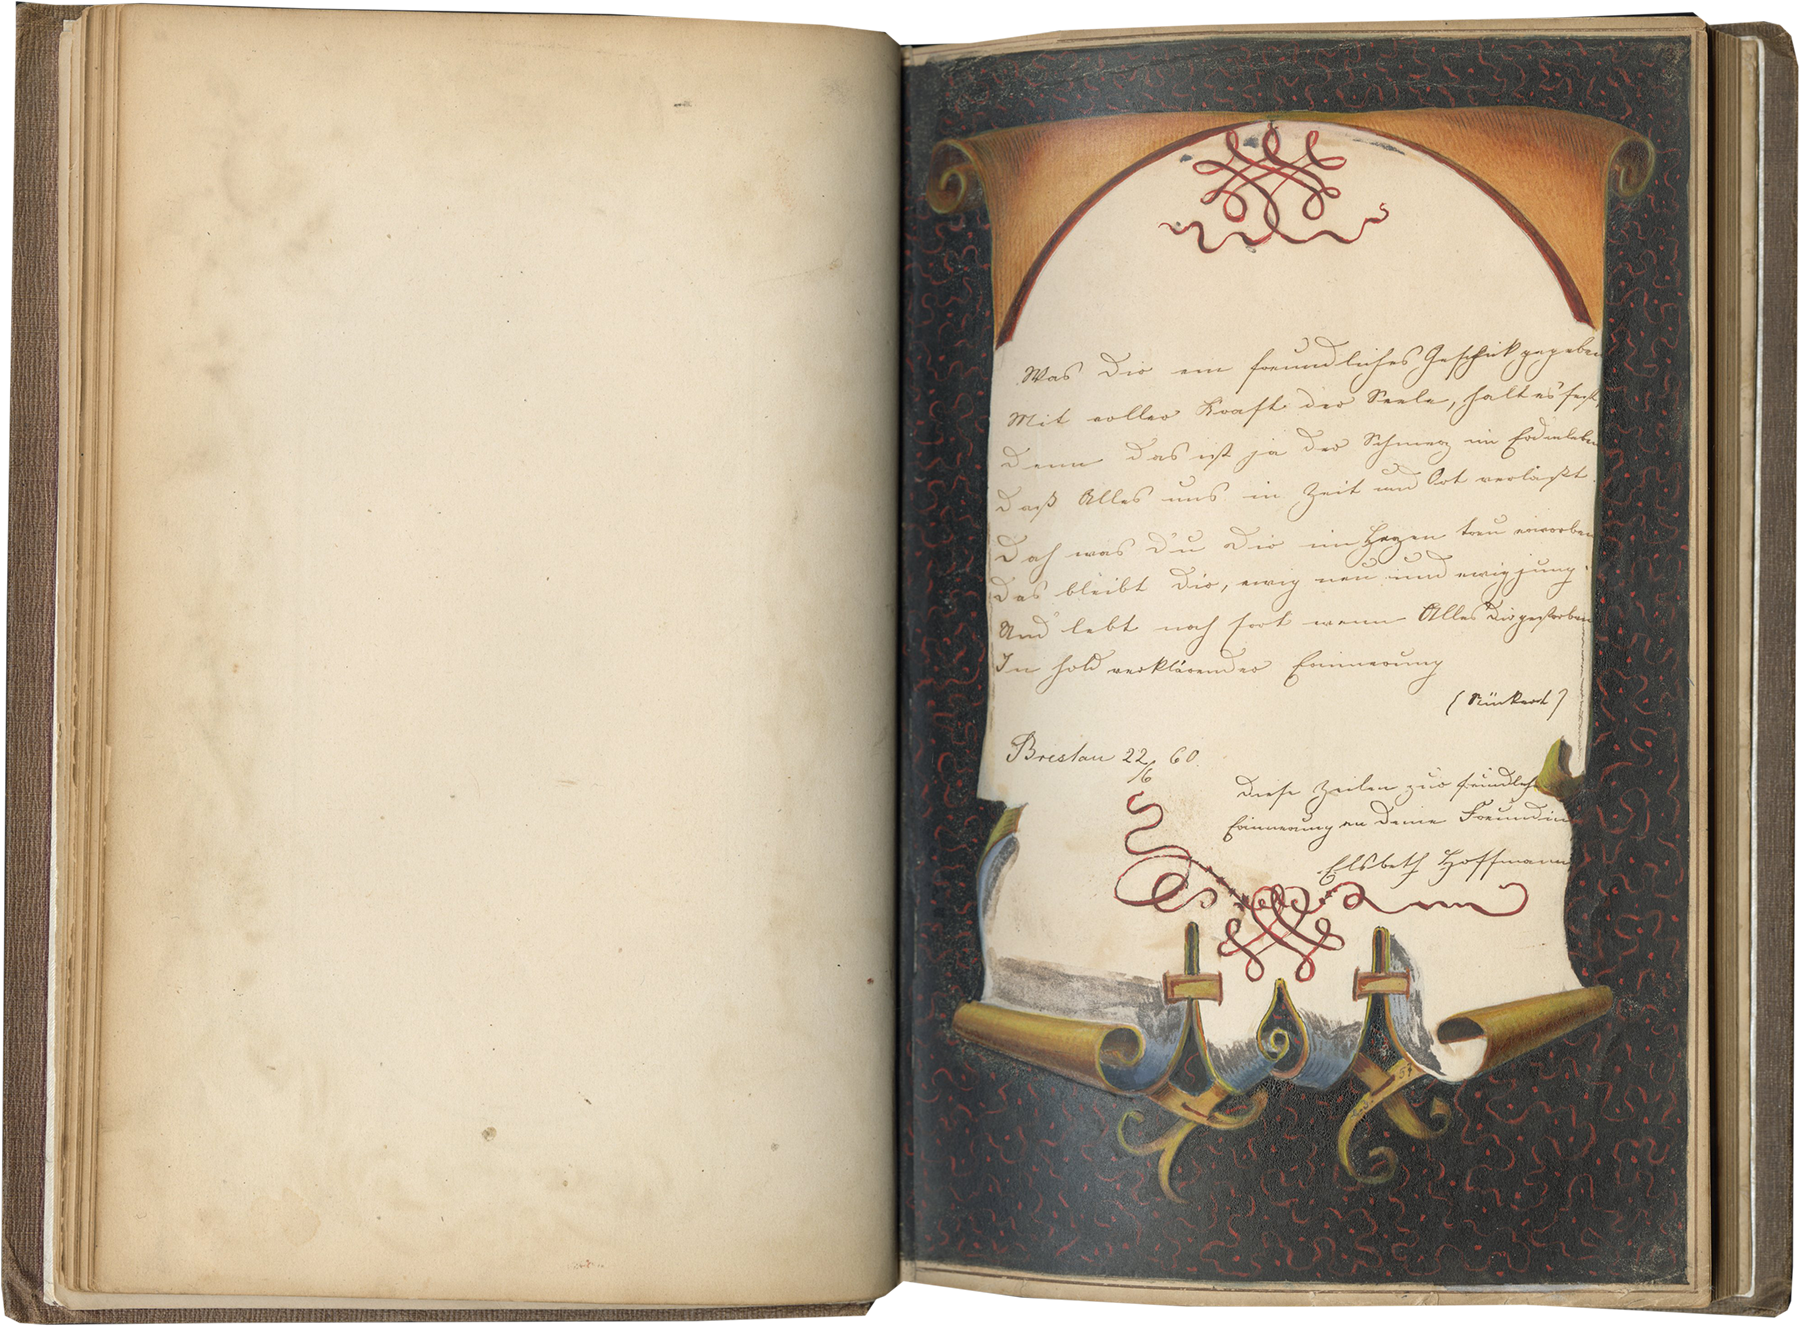 Was Dir ein freundliches Geschick gegeben
Mit voller Kraft der Seele, halt es fest,
Denn das ist ja der Schmerz im Erdenleben
Daß Alles uns in Zeit und Ort verläßt.
Doch was Du Dir im Herzen treu erworben
Das bleibt Dir, ewig neu und ewig jung
Und lebt noch fort wenn Alles Dir gestorben
In hold verklärender Erinnerung
(Rückert)
Breslau 22/6 60.
Diese Zeilen zur freundlich
Erinnerung an Deine Freundin
Elsbeth Hoffmann